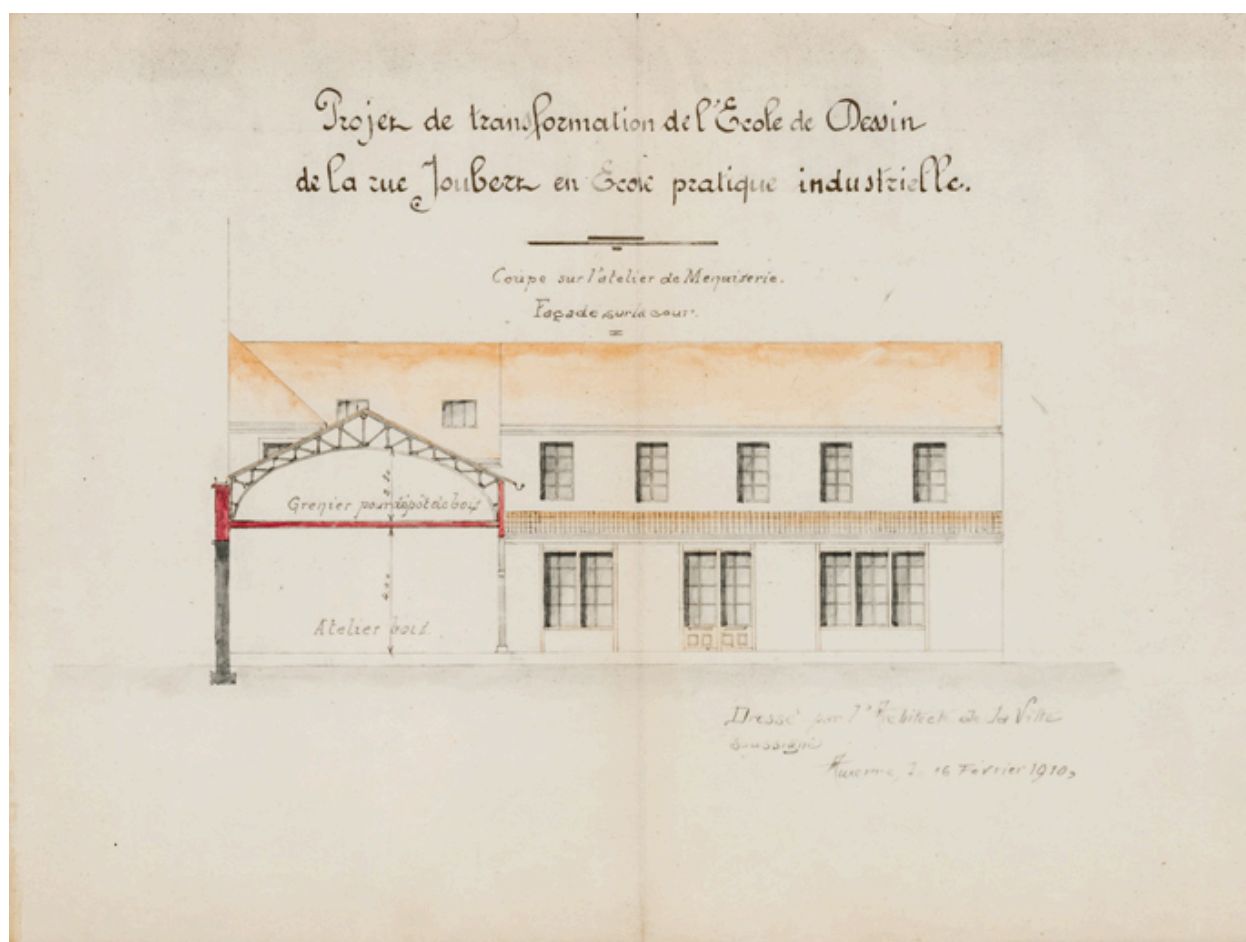 Projet de transformation de l'Ecole de Dessin
de la rue Joubert en Ecole pratique industrielle.
Coupe sur l'atelier de Menuiserie.
Façade sur la cour.
Grenier pour dépôt de bois
Atelier bois
4.00
Dressé par l'Architecte de la Ville
soussigné
Auxerre, le 16 Février 1910,